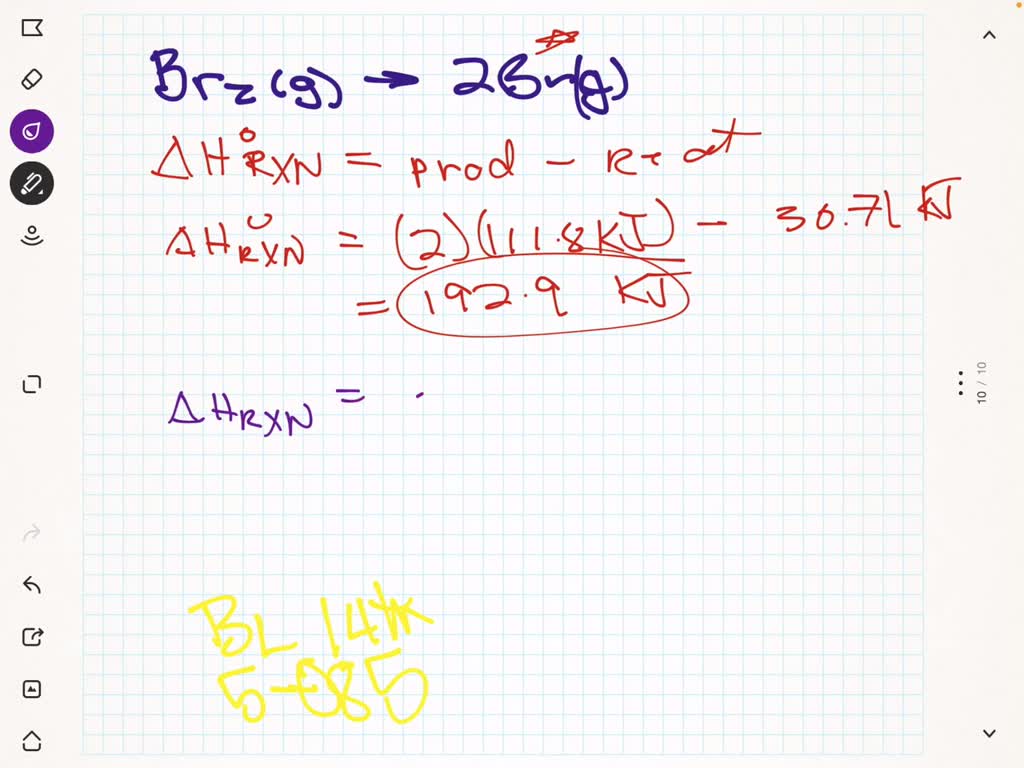 Br2(g) → 2Br(g)
ΔH°RXN = prod - React
ΔH°RXN = (2)(111.8 KJ) - 30.71 KJ
= 192.9 KJ
ΔHRXN = .
BL 14th
5-085
10 / 10